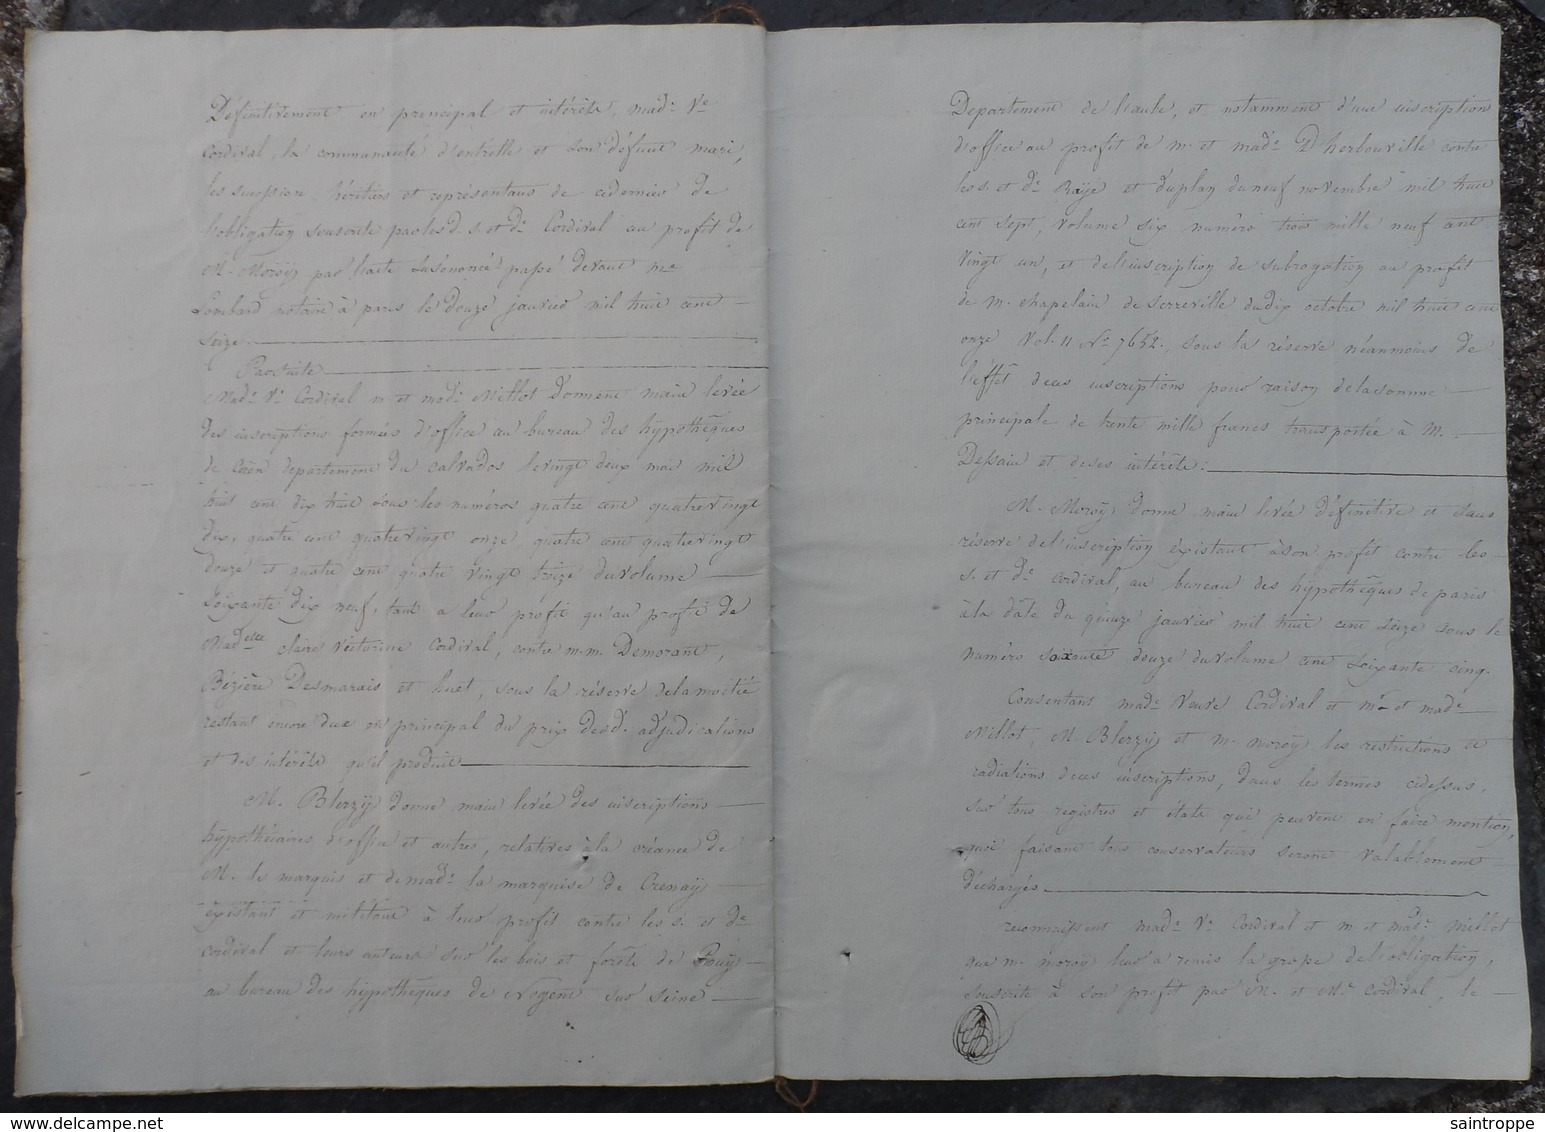 Définitivement en principal et intérêts, mad.e V.e
Cordival, la communauté d'entrelle et son défunt mari,
les succession héritiers et représentans de cedernier de
l'obligation souscrite parlesd. s. et d.e Cordival au profit de
M. Moroÿ par l'acte susénoncé passé devant m.e
Lombard notaire à paris le douze janvier mil huit cent
Seize.
Parsuite
Mad.e V.e Cordival m et mad.e Millot donnent main levée
des inscriptions formées d'office au bureau des hÿpothèques
de Caën departement du calvados levingt deux mai mil
huit cent dix huit sous les numéros quatre cent quatrevingt
dix, quatre cent quatrevingt onze quatre cent quatrevingt
douze et quatre cent quatre vingt treize duvolume
Soixante dix neuf, tant a leur profit qu'au profit de
Mad.elle claire victorine Cordival, contre m.m. Demorant,
Bézière Desmarais et huet, sous la réserve delamoitié
restant encore due en principal du prix desd. adjudications
et des intérêts qu'il produit
M. Blerzÿ donne main levée des inscriptions
hÿpothécaires d'office et autres, relatives àla créance de
M. le marquis et demad.e la marquise de Crenaÿ
éxistant et militant à leur profit contre les s. et d.e
cordival et leurs auteurs sur les bois et forêts de Pouÿ
au bureau des hÿpothèques de Nogent sur Seine
Departement de l'aube, et notamment d'une inscription
d'office au profit de m. et mad.e D'herbouville contre
les s. et d.e Raÿe et duplan duneuf novembre mil huit
cent sept, volume six numéro trois mille neuf cent
Vingt un, et del'inscription de subrogation au profit
de M. chapelain de Serreville dudix octobre mil huit cent
onze Vol. 11 N.o 7652., sous la réserve néanmoins de
l'éffet deces inscriptions pour raison delasomme
principale de trente mille francs transportée à M.
Dessain et deses intérêts.
M. Moroÿ donne main levée définitive et sans
réserve del'inscription éxistant àson profit contre les
s. et d.e cordival, au bureau des hÿpothèques de paris
à la dâte du quinze janvier mil huit cent seize sous le
numéro soixante douze duvolume cent soixante cinq.
Consentant mad.e Veuve Cordival et m.r et mad.e
Millot, M. Blerzÿ et m. moroÿ les restrictions et
radiations deces inscriptions, dans les termes cidessus,
sur tous registres et états qui peuvent en faire mention,
quoi faisant tous conservateurs seront valablement
déchargés
reconnaissent mad.e V.e Cordival et m et mad.e Millot
que m. moroÿ leur a remis la grosse del'obligation,
souscrite à son profit par M. et M.e Cordival, le
saintroppe